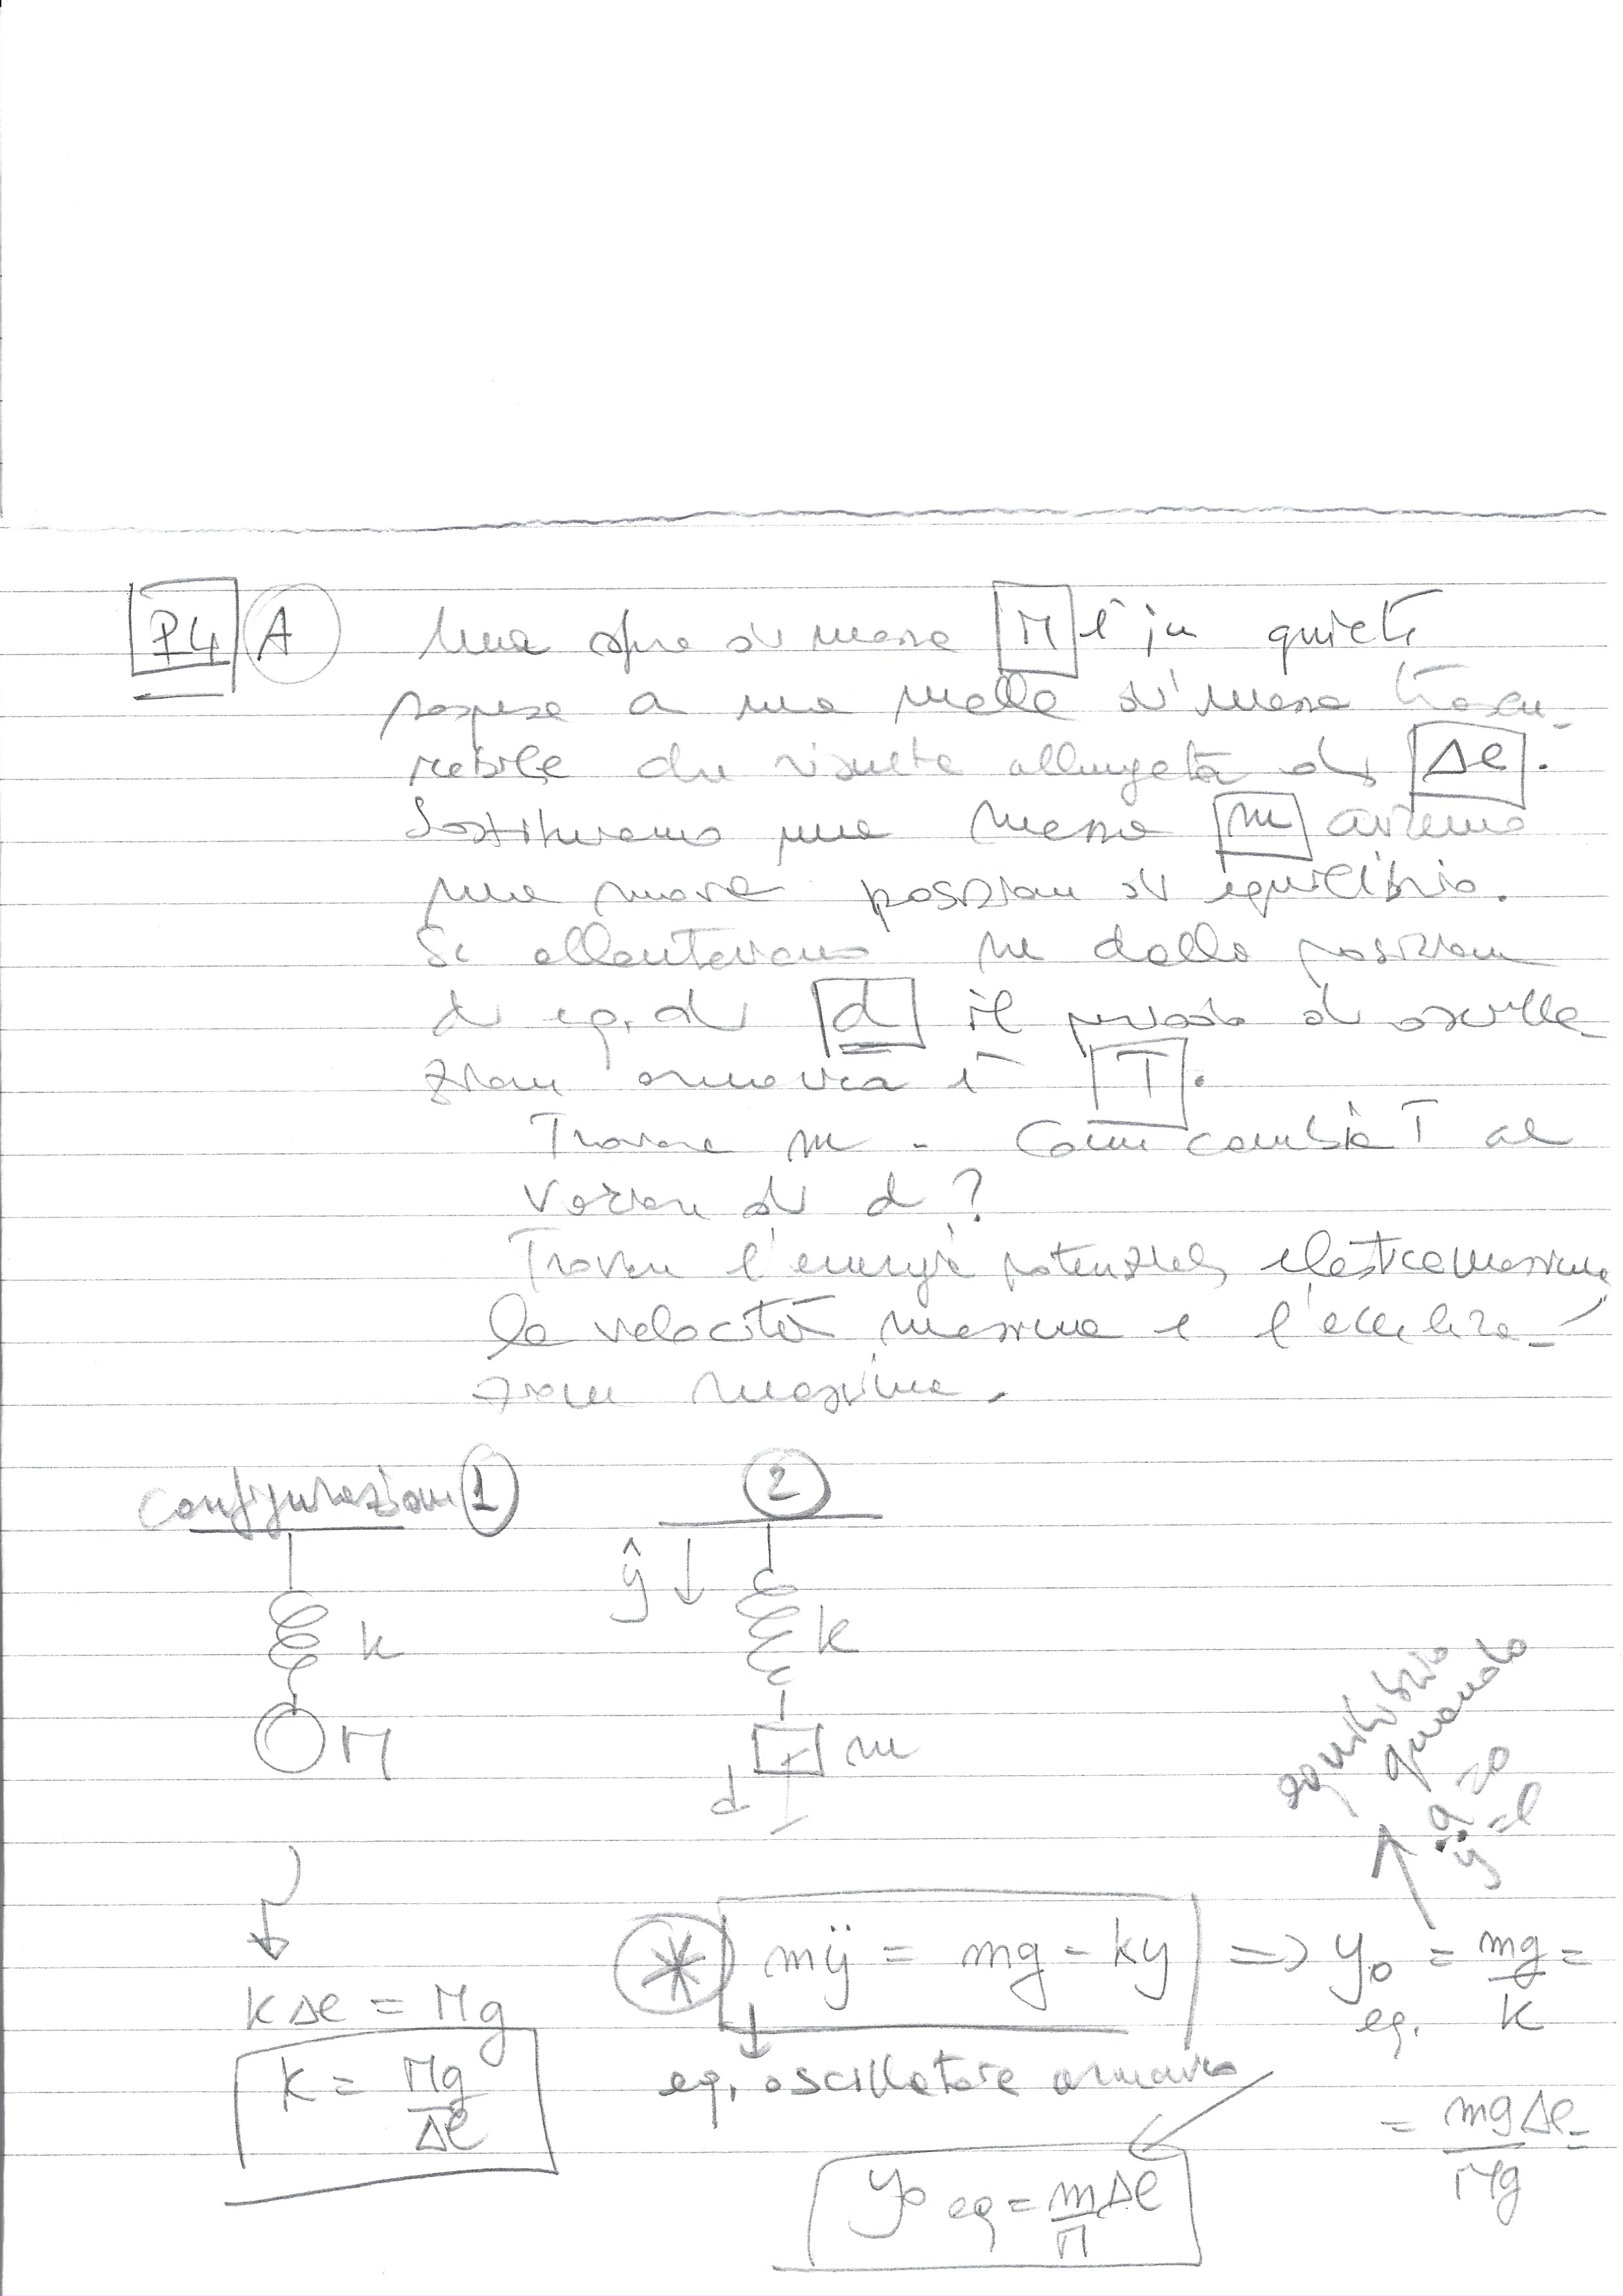 P4 A Una sfera di massa M è in quiete
sospesa a una molla di massa trascu-
rabile che risulta allungata di Δl.
Sostituiamo una massa m avremo
una nuova posizione di equilibrio.
Se allontaniamo m dalla posizione
di eq. di d il periodo di oscilla-
zione armonica è T.
Trovare m. Come cambia T al
variare di d?
Trovare l'energia potenziale elastica massima
la velocità massima e l'accelera-
zione massima.
Configurazione 1 2
ŷ
k k
M m
d
equilibrio
quando
a = 0
ÿ =
* mÿ = mg - ky => y₀ eq. = mg/k =
kΔl = Mg
k = Mg/Δl
eq. oscillatore armonico
= mgΔl/Mg =
y₀ eq = mΔl/M